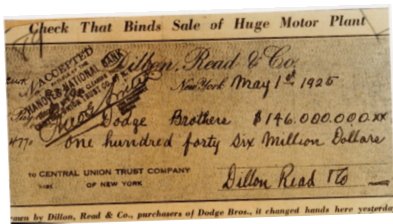 Check That Binds Sale of Huge Motor Plant
ACCEPTED
Dillon, Read & Co.
NATIONAL BANK
New York May 1st 1925
Dodge Brothers $146.000.000.xx
one hundred forty six Million Dollars
TO CENTRAL UNION TRUST COMPANY
OF NEW YORK
Dillon Read & Co
by Dillon, Read & Co., purchasers of Dodge Bros., it changed hands here yesterday